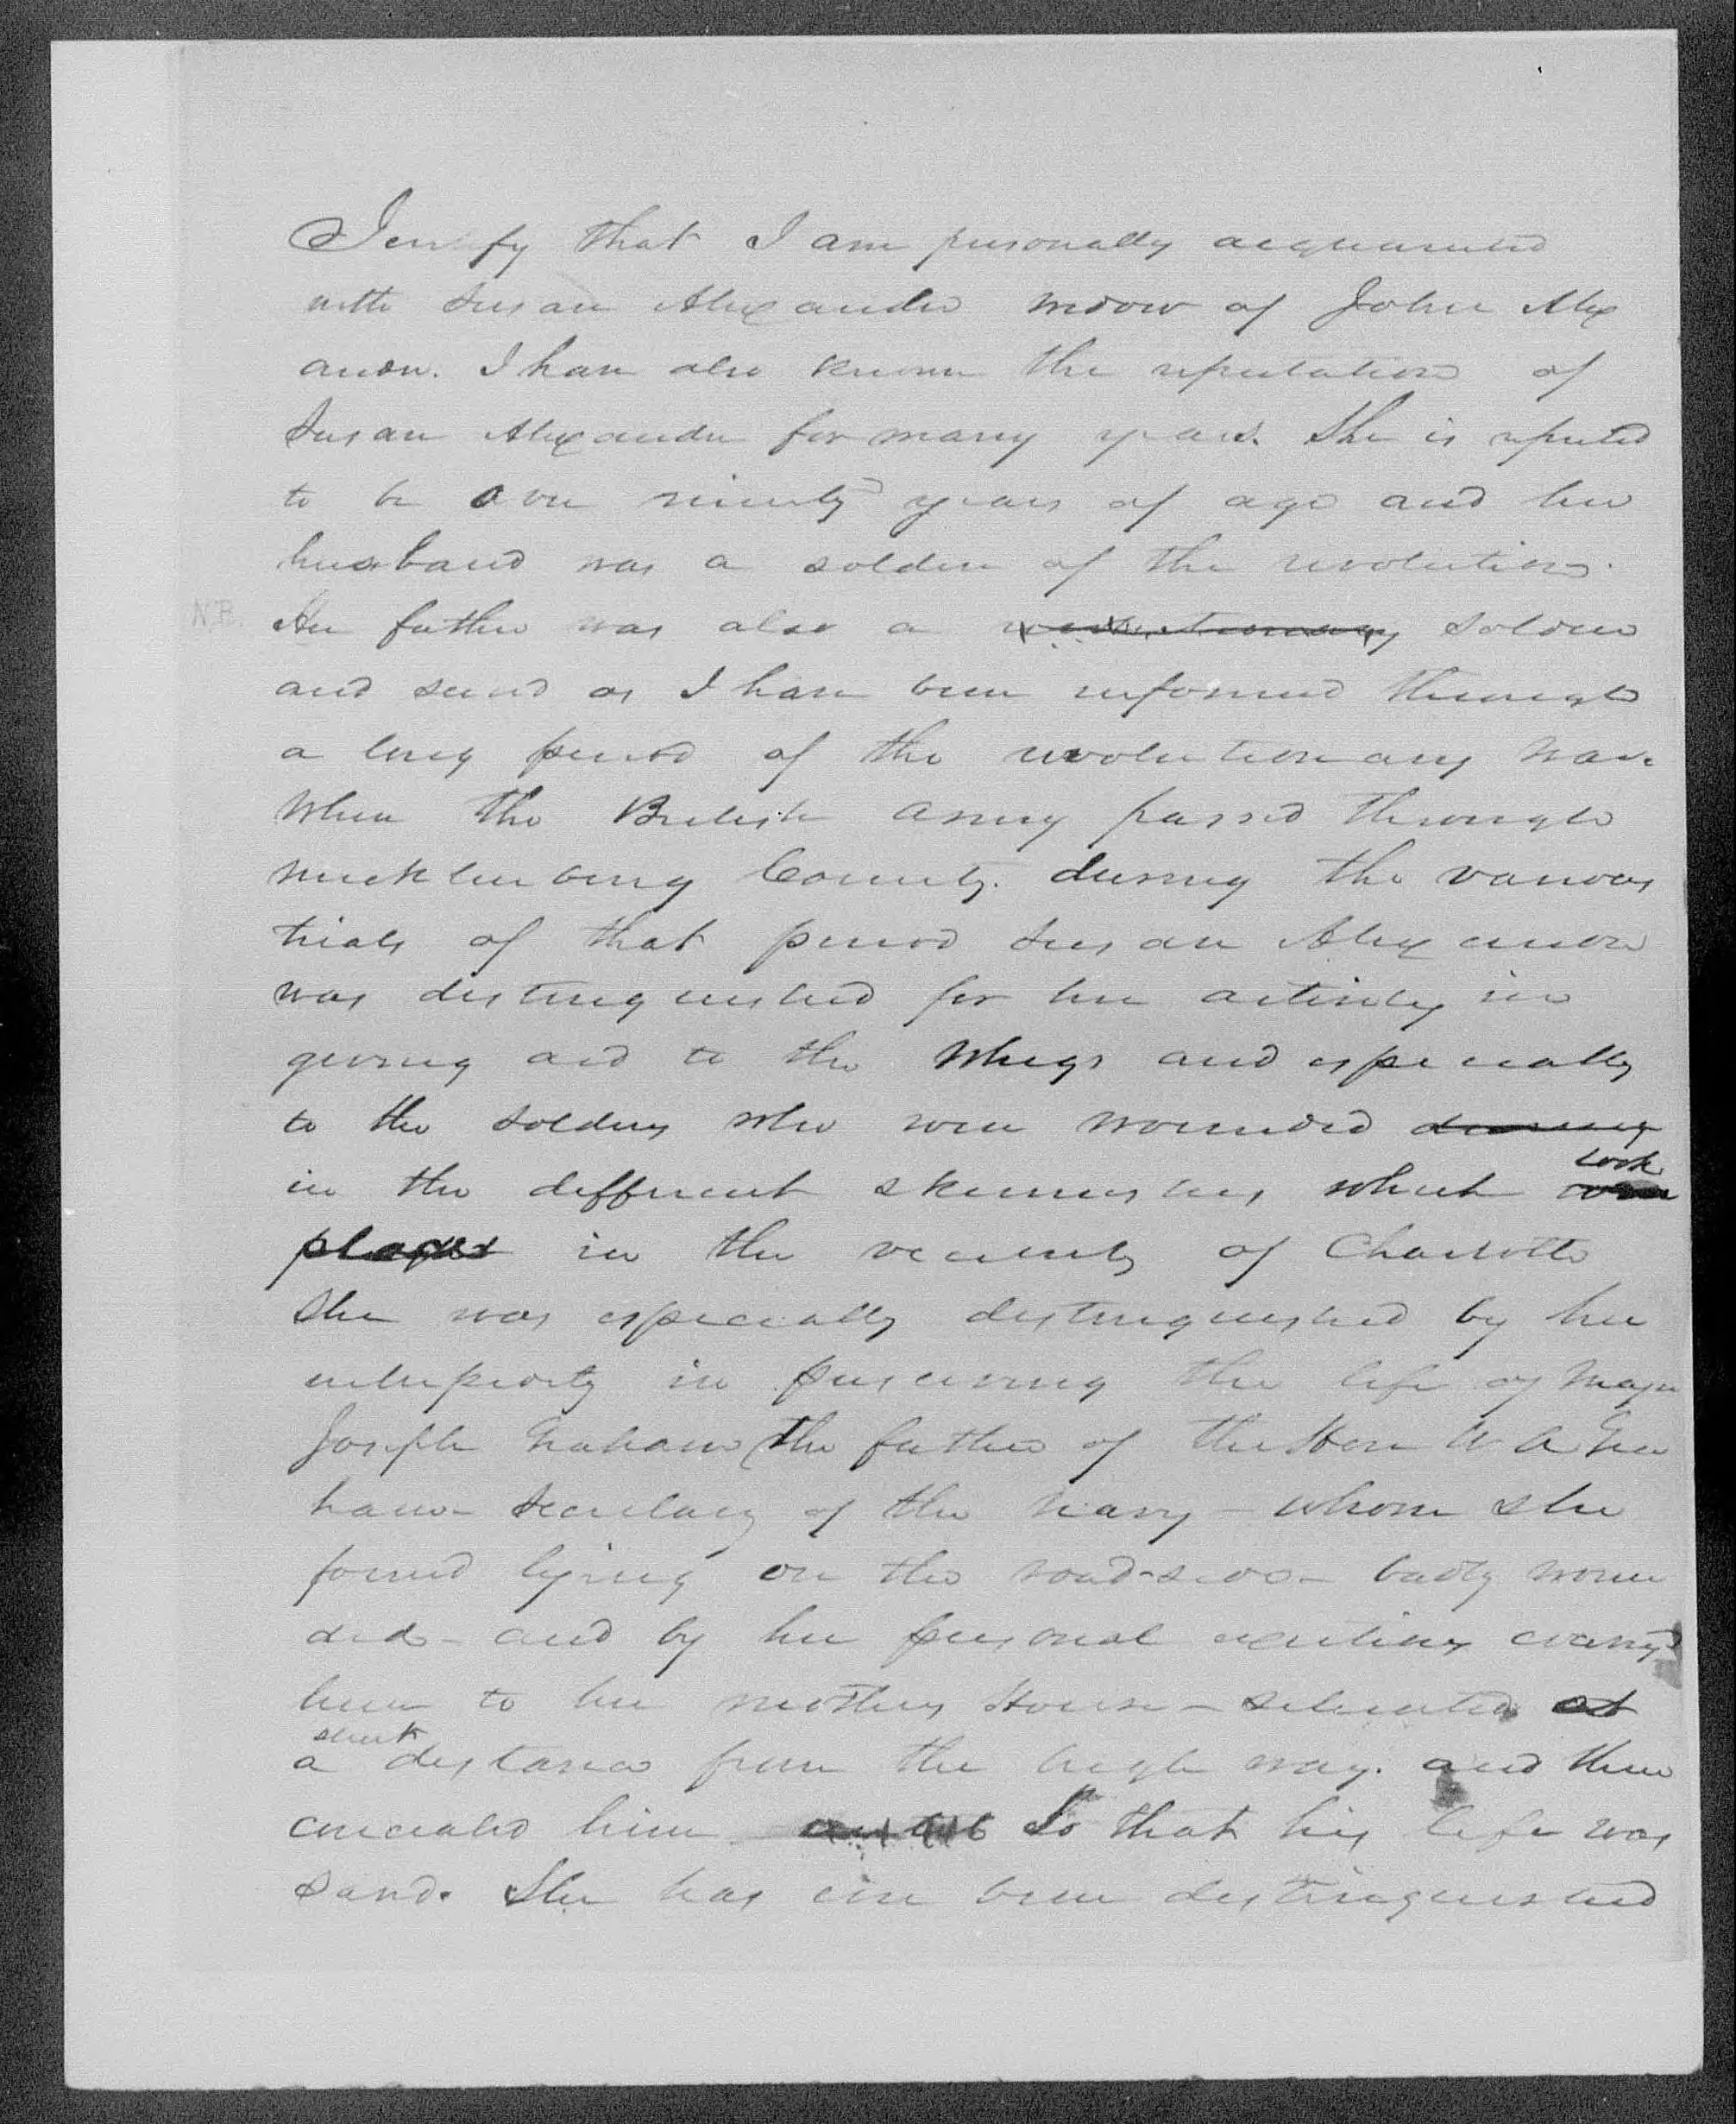 I certify that I am personally acquainted
with Susan Alexander widow of John Alex
ander. I have also known the reputation of
Susan Alexander for many years. She is reputed
to be over ninety years of age and her
husband was a soldier of the revolution.
N.B. Her father was also a revolutionary soldier
and served as I have been informed through
a long period of the revolutionary war.
When the British army passed through
Mecklenburg County. during the various
trials of that period Susan Alexander
was distinguished for her activity in
giving aid to the Whigs and especially
to the soldiers who were wounded during
in the different skirmishes which took
place in the vicinity of Charlotte
She was especially distinguished by her
intrepidity in preserving the life of Major
Joseph Graham (the father of the Hon W A Gra
ham - Secretary of the Navy - whom she
found lying on the road-side - badly woun
ded - and by her personal exertions carried
him to her mothers House - situated at
a short distance from the high way. and there
concealed him so that his life was
saved. She has ever been distinguished